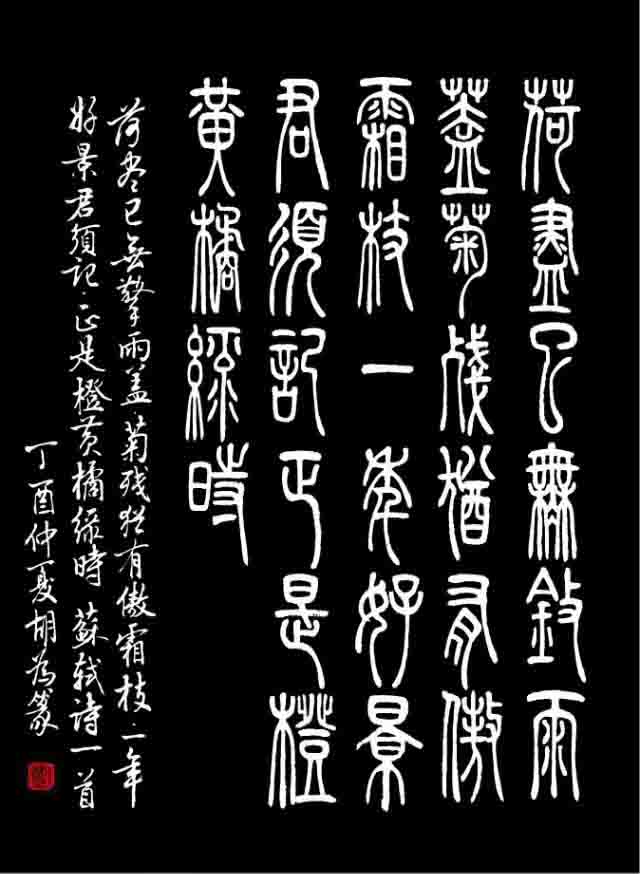 荷盡已無敧雨
蓋菊殘猶有傲
霜枝一年好景
君須記正是橙
黃橘綠時
荷尽已無擎雨盖菊残犹有傲霜枝一年
好景君須記正是橙黄橘緑時蘇軾詩一首
丁酉仲夏胡為篆